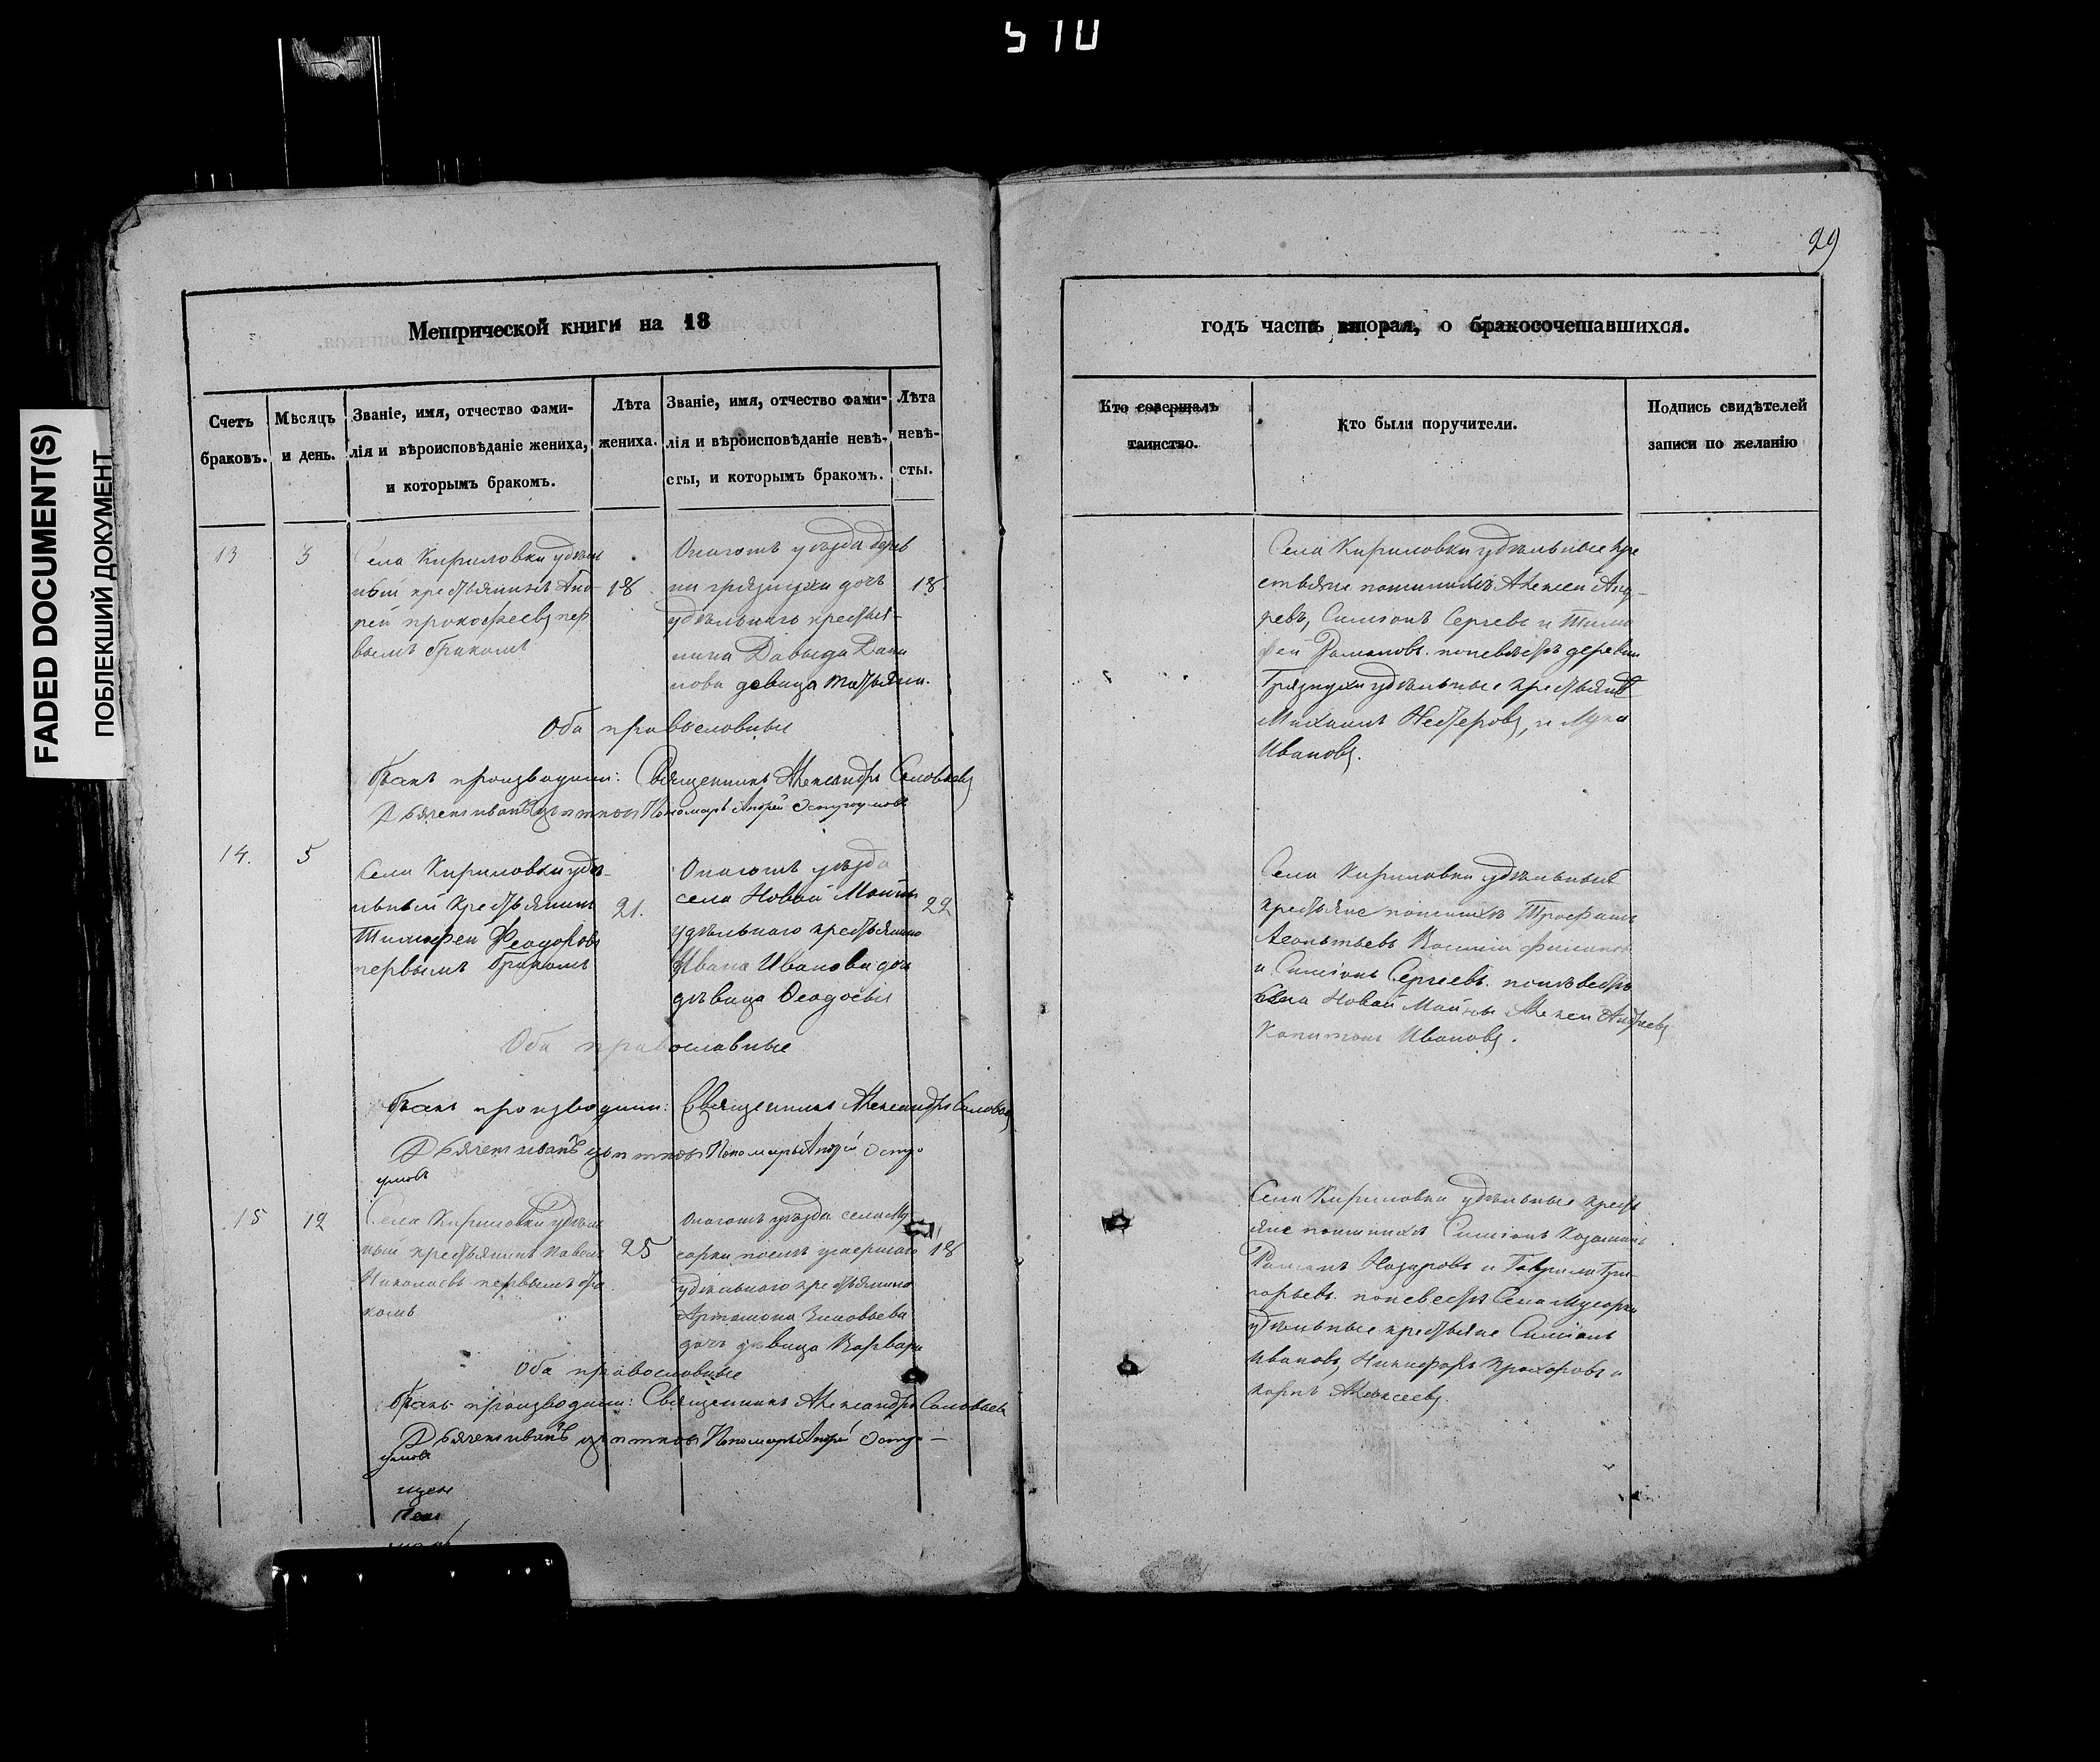 510
FADED DOCUMENT(S)
ПОБЛЕКШИЙ ДОКУМЕНТ
29
Метрической книги на 18
годъ часть вторая, о бракосочетавшихся.
Счетъ браковъ.
Мѣсяцъ и день.
Званіе, имя, отчество фами-
лія и вѣроисповѣданіе жениха,
и которымъ бракомъ.
Лѣта
жениха.
Званіе, имя, отчество фами-
лія и вѣроисповѣданіе невѣ-
сты, и которымъ бракомъ.
Лѣта
невѣ-
сты.
Кто совершалъ
таинство.
Кто были поручители.
Подпись свидѣтелей
записи по желанію
13
5
Села Кириловки удѣль
ный крестьянинъ Анд
рей Прокофьевъ пер
вымъ бракомъ
18
уѣзда дерев
ни Грязнухи дочь
удѣльнаго крестья-
нина Давыда Дани
лова девица Татьяна.
18
Оба православные
Бракъ производили: Священникъ Александръ Соловьевъ
Дьячекъ Иванъ Пономарь Андрей Остроумовъ
Села Кириловки удѣльные кре
стьяне по женихѣ Алексей Анд-
реевъ, Симеонъ Сергеевъ и Тимо
фей Романовъ. по невѣстѣ деревни
Грязнухи удѣльные крестьяне
Михаилъ Нестеровъ, и Лука
Ивановъ.
14.
5
Села Кириловки удѣ-
льный крестьянинъ
Тимофей Феодоровъ
первымъ бракомъ
21.
уѣзда
села Новой Майны
удѣльнаго крестьянина
Ивана Иванова дочь
дѣвица Феодосія
22
Оба православные
Бракъ производили: Священникъ Александръ Соловьевъ
Дьячекъ Иванъ Пономарь Андрей Остро
умовъ
Села Кириловки удѣльные
крестьяне по женихѣ Трофимъ
Леонтьевъ Василій
и Симеонъ Сергеевъ. по невѣстѣ
села Новой Майны Алексей Андреевъ
Капитонъ Ивановъ.
15
12
Села Кириловки удѣль
ный крестьянинъ Павелъ
Николаевъ первымъ бра
комъ
25
уѣзда села Му
сорки послѣ умершаго
удѣльнаго крестьянина
Артамона Зиновьева
дочь дѣвица Варвара
18
Оба православные
Бракъ производили: Священникъ Александръ Соловьевъ
Дьячекъ Иванъ Пономарь Андрей Остро-
умовъ
Села Кириловки удѣльные кресть
яне по женихѣ Симеонъ
Романъ Назаровъ и Гаврила Гри-
горьевъ. по невестѣ села Мусорки
удѣльные крестьяне Симеонъ
Ивановъ, Никифоръ Прохоровъ и
Карпъ Алексеевъ.